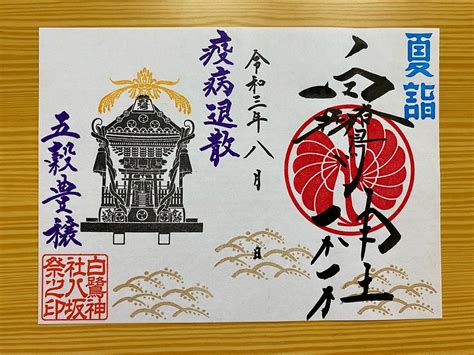 夏詣
白鷺神社
令和三年八月 日
疫病退散
五穀豊穣
白鷺神
社八坂
祭之印